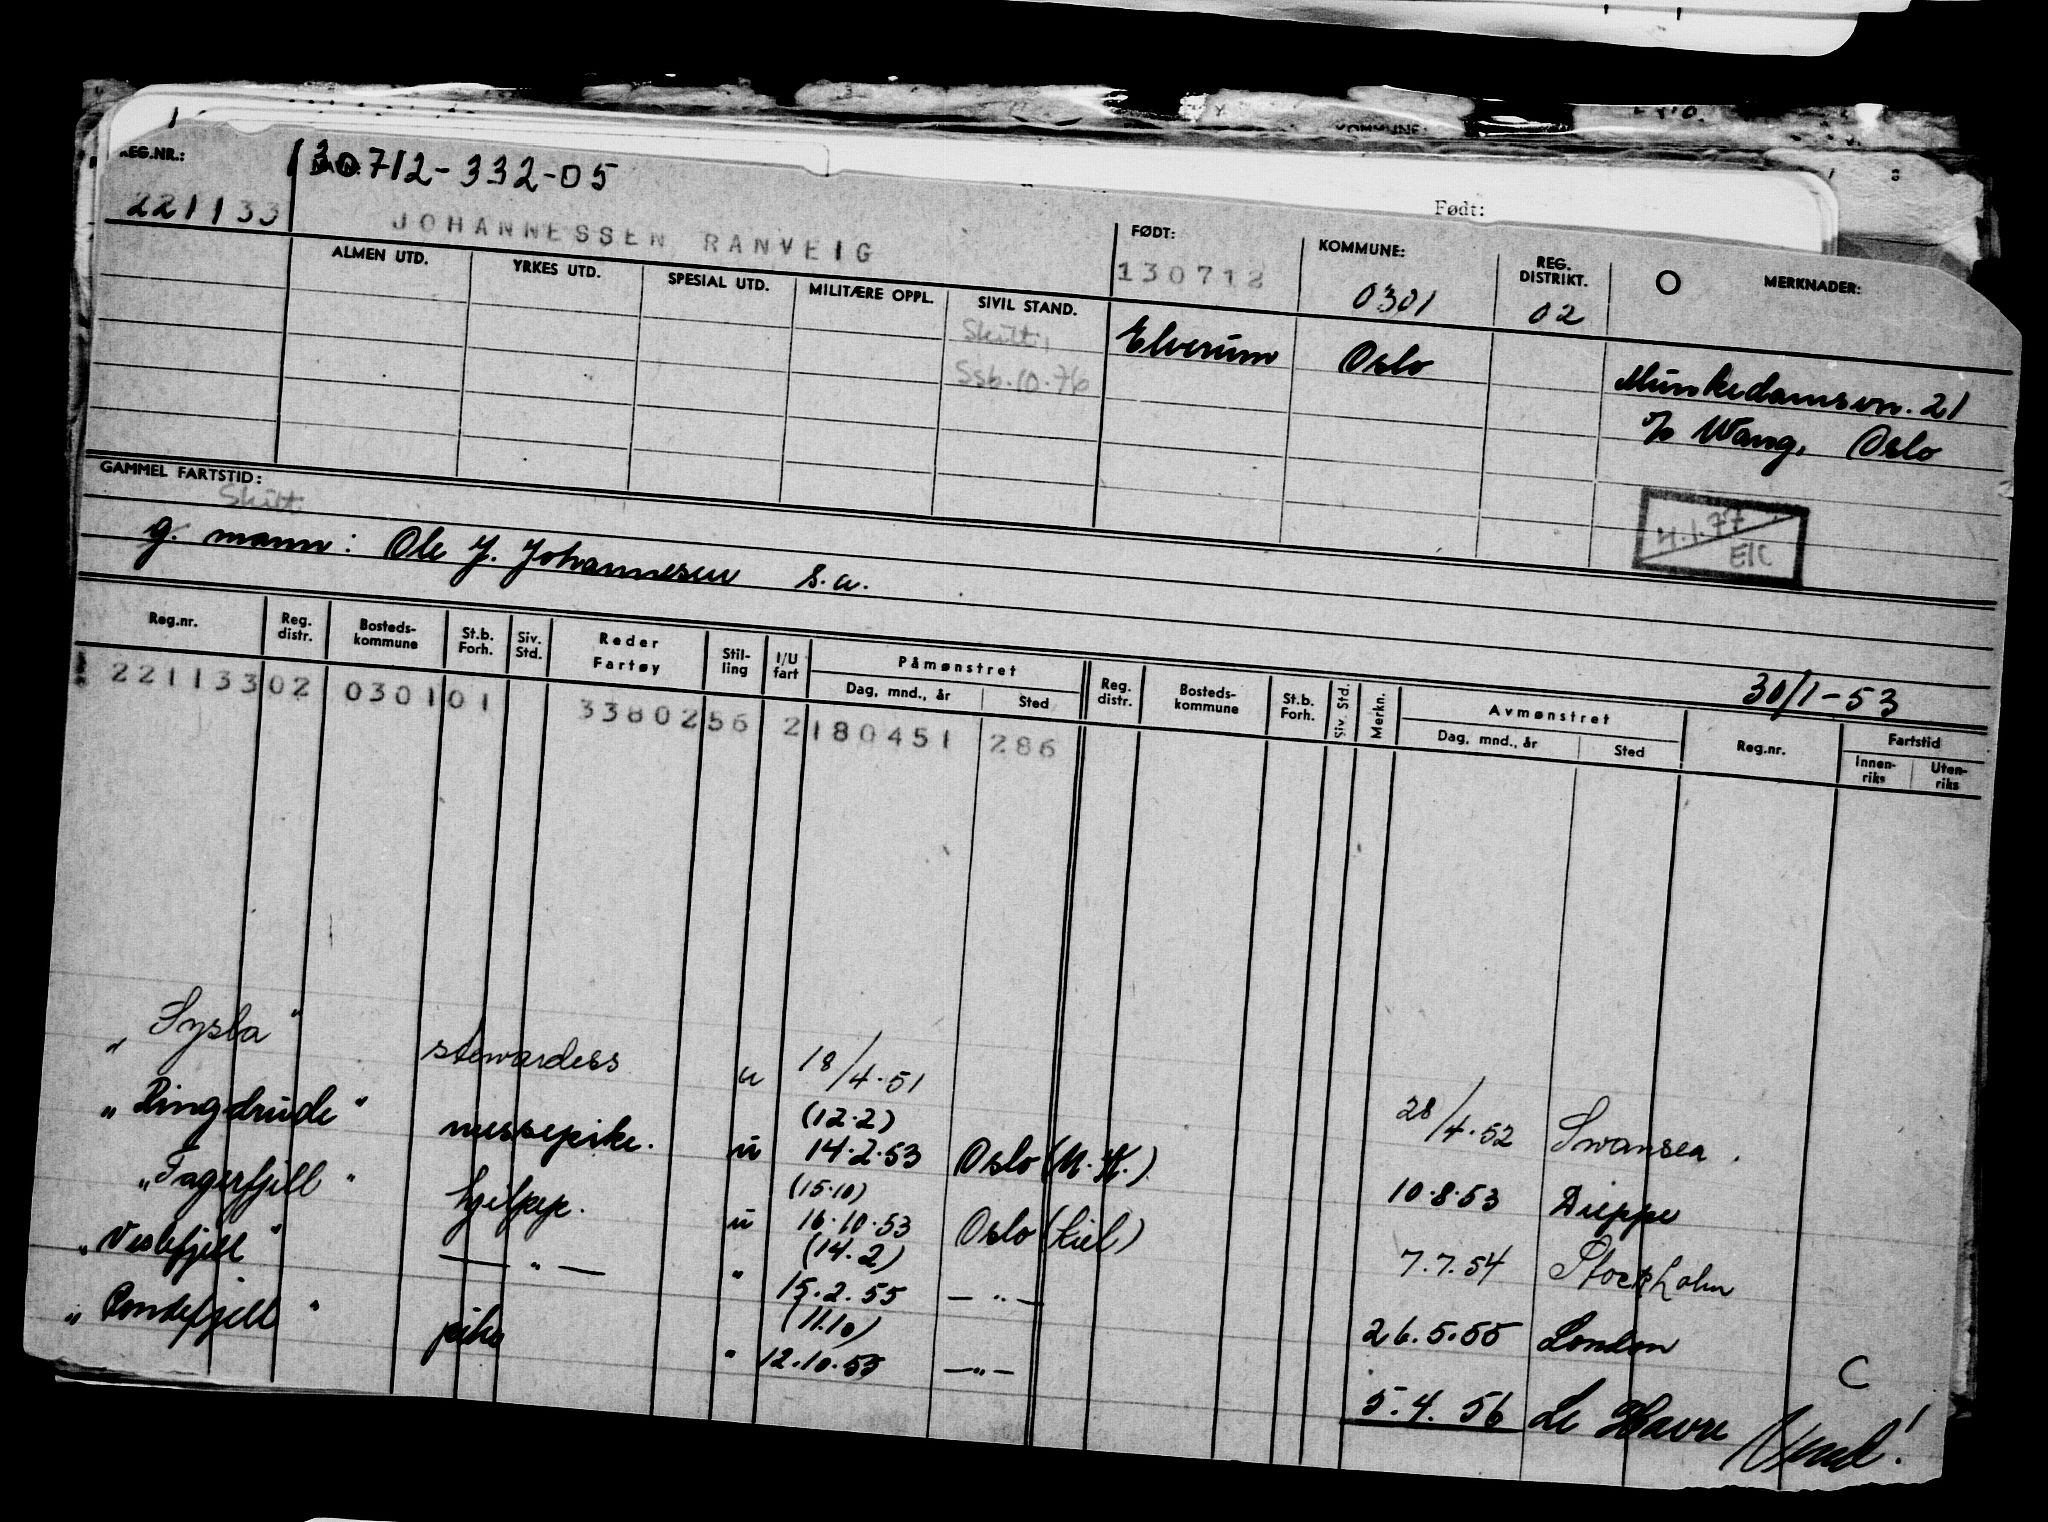 Født:
REG.NR.: 130712-332-05
221133 JOHANNESSEN RANVEIG
ALMEN UTD. YRKES UTD. SPESIAL UTD. MILITÆRE OPPL. SIVIL STAND. FØDT: KOMMUNE: REG. DISTRIKT. MERKNADER:
130712 0301 02
Skilt, Elverum Oslo Munkedamsvn. 21
Ssb.10.76 c/o Wang, Oslo
4.1.77
EK
GAMMEL FARTSTID:
Skilt
g. mann: Ole J. Johannesen s.a.
30/1-53
Reg.nr. Reg. distr. Bosteds-kommune St.b. Forh. Siv. Std. Reder Fartøy Stil-ling I/U fart Påmønstret Dag, mnd., år Sted Reg. distr. Bosteds-kommune St.b. Forh. Siv. Std. Merkn. Avmønstret Dag, mnd., år Sted Reg.nr. Fartstid Innen-riks Uten-riks
221133 02 0301 01 3380256 2 180451 286
"Sysla" stewardess u 18/4.51 28/4.52 Swansea.
(12.2)
"Ringdrude" messepike. u 14.2.53 Oslo (U.K.) 10.8.53 Dieppe
(15.10)
"Fagerfjell" hjelpep. u 16.10.53 Oslo (Kiel) 7.7.54 Stockholm
(14.2)
"Veslefjell" — " — " 15.2.55 — " — 26.5.55 London
(11.10)
"Rondefjell" pike " 12.10.55 — " — 5.4.56 Le Havre
C
Vend!